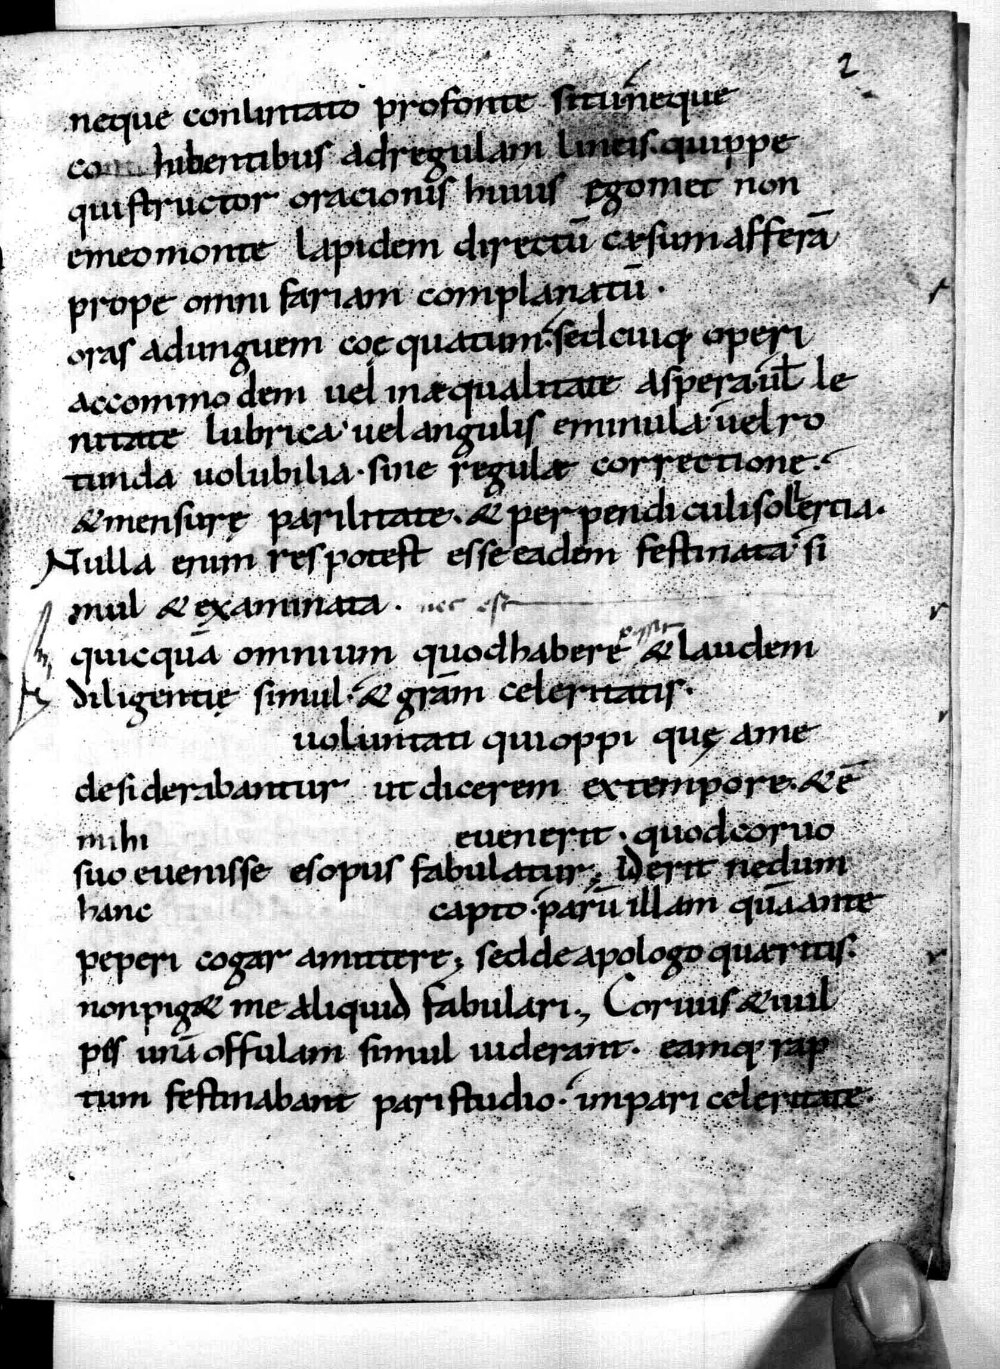 2
neque conlimitato profonte situ neque
co hibentibus adregulam lineis. quippe
qui structor oracionis huius egomet non
emeomonte lapidem directū cæsum afferā
prope omni fariam complanatū.
oras adunguem coęquatum. sed cuiq; operi
accommodem uel inæqualitate aspera. ul̄ le
nitate lubrica uel angulis eminula uel ro
tunda uolubilia. sine regulæ correctione.
& mensurę parilitate. & perpendiculi solertia.
Nulla enim res potest esse eadem festinata si
mul & examinata. nec est
quicquā omnium quod habere &laudem
diligentię simul. & grām celeritatis.
uoluntati qui oppi quę ame
desiderabantur ut dicerem extempore. & ē
mihi euenerit. quod coruo
suo euenisse esopus fabulatur; Id erit nedum
hanc capto. parū illam quā ante
peperi cogar amittere; sed de apologo quæritis.
non pig& me aliquid fabulari., Coruus & uul
pis unā offulam simul uiderant. eamq; rap
tum festinabant pari studio. impari celeritate.